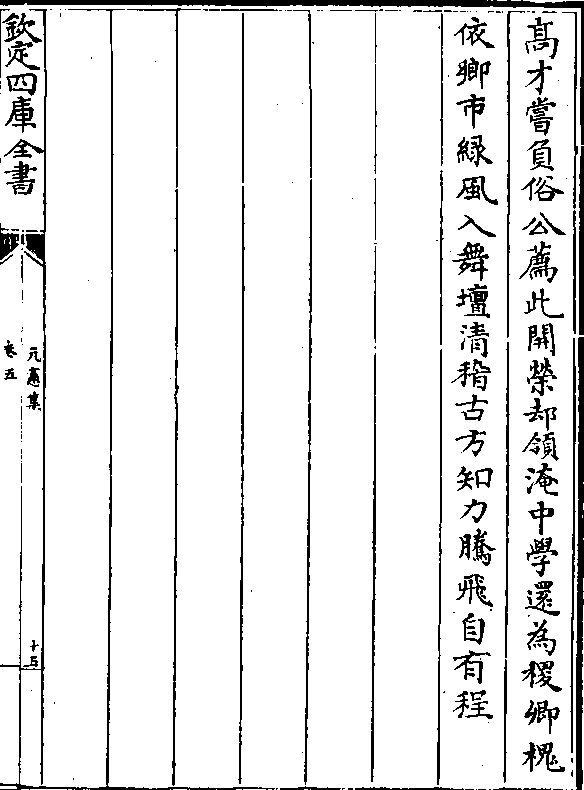 髙才嘗負俗公薦此開榮却領淹中學還為稷卿槐
依卿市緑風入舞壇清稽古方知力騰飛自有程
欽定四庫全書
元憲集
卷五
十五